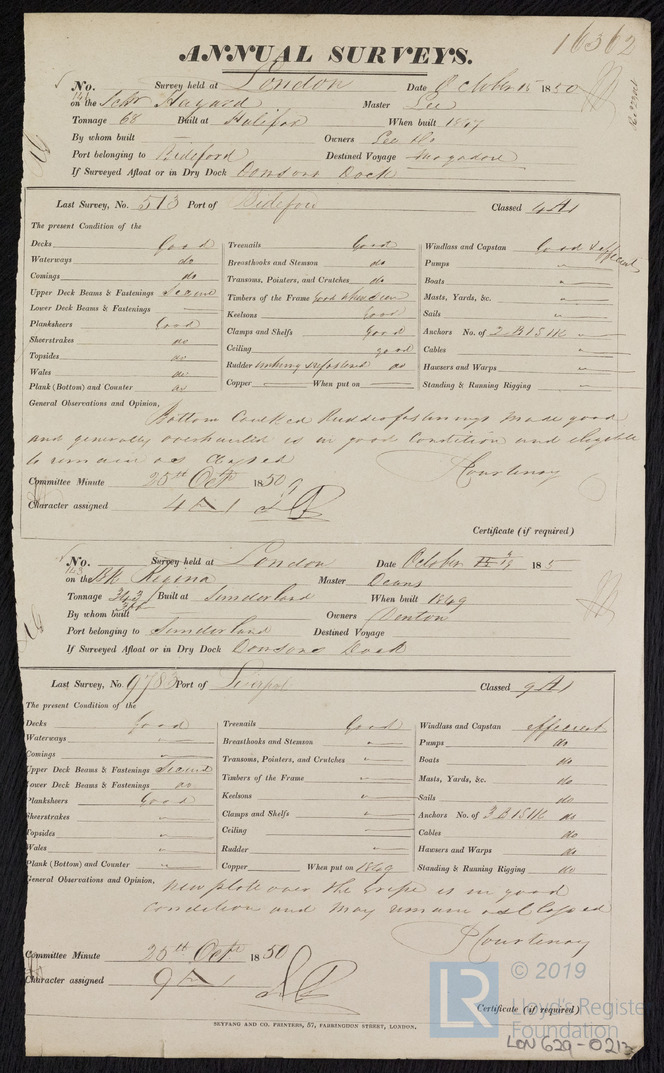 16362
ANNUAL SURVEYS.
No. 141 Survey held at London Date October 15 1850
on the Schr Master Lee
Tonnage 68 Built at Halifax When built 1847
By whom built — Owners Lee &Co
Port belonging to Bideford Destined Voyage Mogadore
If Surveyed Afloat or in Dry Dock Dowsons Dock
Last Survey, No. 513 Port of Bideford Classed 4A1
The present Condition of the
Decks Good
Waterways do
Comings do
Upper Deck Beams & Fastenings Seaured
Lower Deck Beams & Fastenings —
Planksheers Good
Sheerstrakes do
Topsides do
Wales do
Plank (Bottom) and Counter do
Treenails Good
Breasthooks and Stemson do
Transoms, Pointers, and Crutches do
Timbers of the Frame Good where seen
Keelsons Good
Clamps and Shelfs Good
Ceiling good
Rudder unhung & refastend do
Copper — When put on —
Windlass and Capstan Good & efficient
Pumps "
Boats "
Masts, Yards, &c. "
Sails "
Anchors No. of 2 B 1 S 1 K "
Cables "
Hawsers and Warps "
Standing & Running Rigging "
General Observations and Opinion,
Bottom Caulked Rudder fastenings made good
and generally overhauled is in good Condition and eligible
to remain as Classed
Courtenay
Committee Minute 25th Octr 1850
Character assigned 4 A 1
Certificate (if required)
No. 143 Survey held at London Date October 185
on the Bk Regina Master Deans
Tonnage 343 Built at Sunderland When built 1849
By whom built Owners Denton
Port belonging to Sunderland Destined Voyage
If Surveyed Afloat or in Dry Dock Dowsons Dock
Last Survey, No. 9783 Port of Liverpol Classed 9A1
The present Condition of the
Decks Good
Waterways "
Comings "
Upper Deck Beams & Fastenings Seaured
Lower Deck Beams & Fastenings do
Planksheers Good
Sheerstrakes "
Topsides "
Wales "
Plank (Bottom) and Counter "
Treenails Good
Breasthooks and Stemson "
Transoms, Pointers, and Crutches "
Timbers of the Frame "
Keelsons "
Clamps and Shelfs "
Ceiling "
Rudder "
Copper When put on 1849
Windlass and Capstan efficient
Pumps do
Boats do
Masts, Yards, &c. do
Sails do
Anchors No. of 3 B 1 S 1 K do
Cables do
Hawsers and Warps do
Standing & Running Rigging do
General Observations and Opinion,
New plate over the Gripe is in good
Condition and may remain as Classed
Courtenay
Committee Minute 25th Octr 1850
Character assigned 9 A 1
Certificate (if required)
SEYFANG AND CO. PRINTERS, 57, FARRINGDON STREET, LONDON,
LR © 2019
Lloyd's Register
Foundation
LON 629-0213